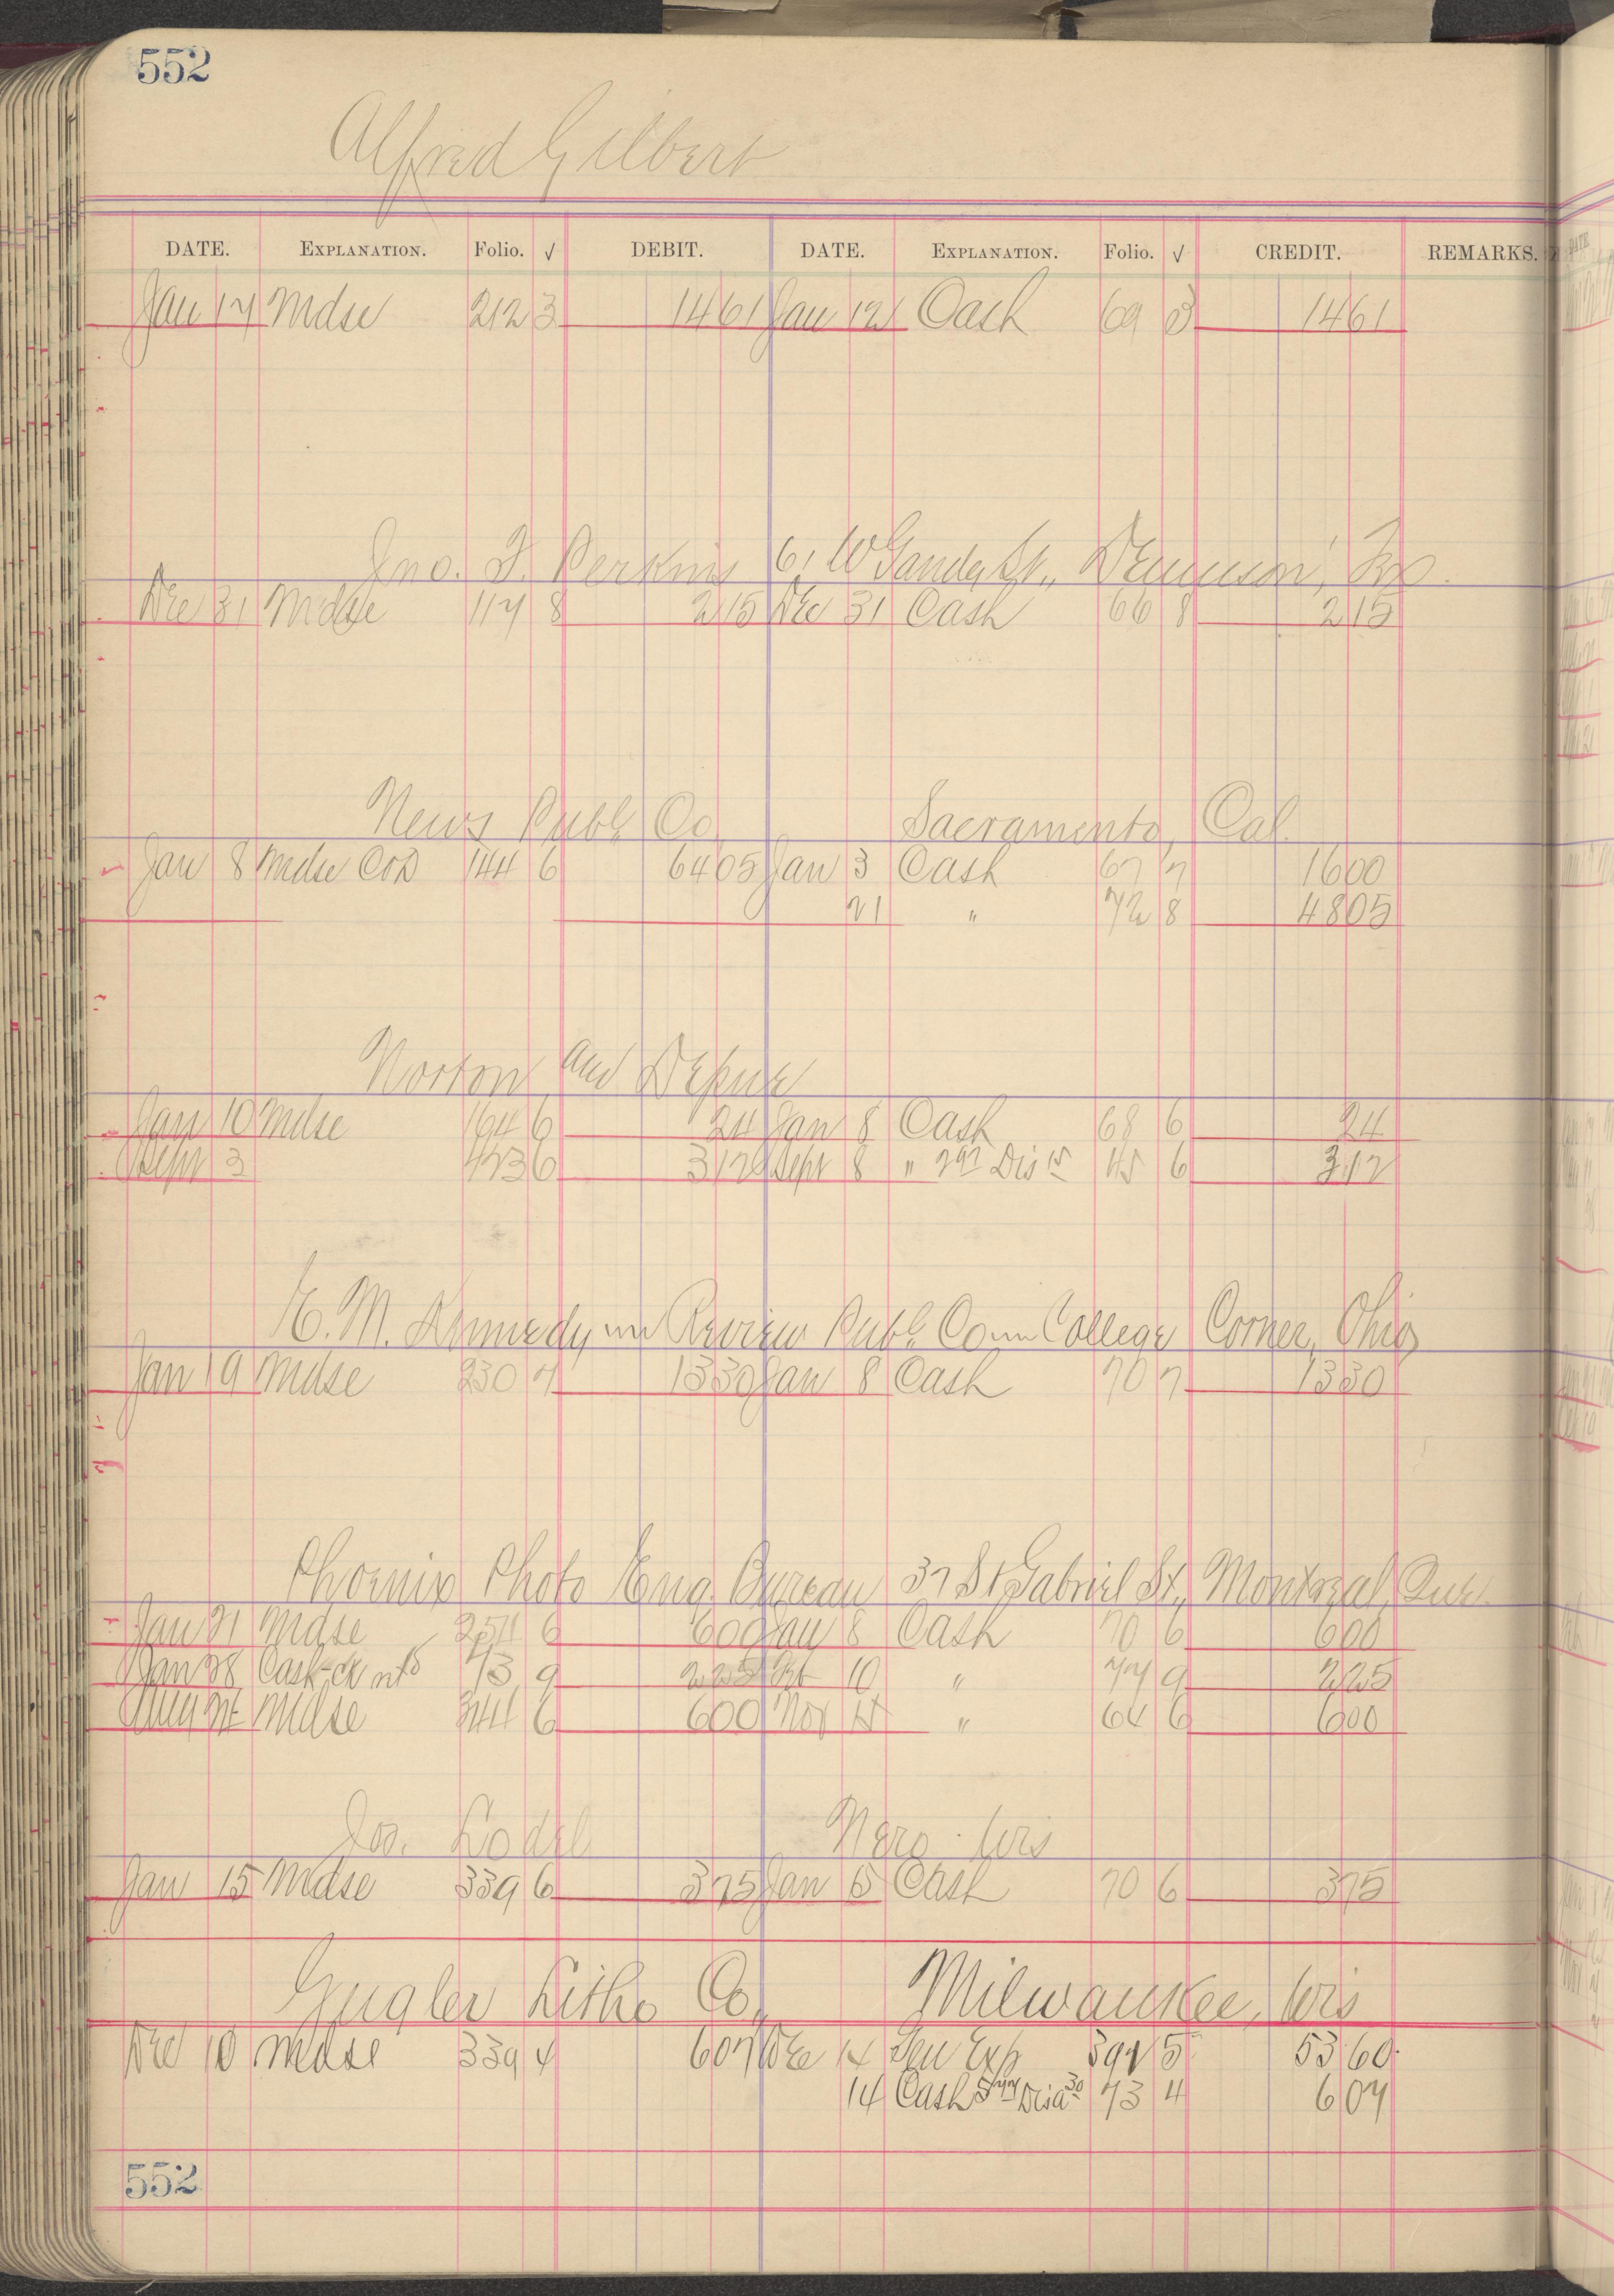 552
Alfred Gilbert
DATE. EXPLANATION. Folio. √ DEBIT. DATE. EXPLANATION. Folio. √ CREDIT. REMARKS.
Jan 17 Mdse 212 3 14 61 Jan 12 Cash 69 3 14 61
Jno. F. Perkins 61 W Gandy St., Denison, Tex.
Dec 31 Mdse 117 8 2 15 Dec 31 Cash 66 8 2 15
News Publ Co Sacramento, Cal.
Jan 8 Mdse COD 144 6 64 05 Jan 3 Cash 67 7 16 00
21 " 72 8 48 05
Norton and Depue
Jan 10 Mdse 164 6 24 Jan 8 Cash 68 6 24
Sept 3 423 6 3 12 Sept 8 " Dis 45 6 3 12
E. M. Kennedy Review Publ Co College Corner, Ohio
Jan 19 Mdse 230 7 13 30 Jan 8 Cash 70 7 13 30
Phoenix Photo Eng. Bureau 37 St Gabriel St., Montreal, Que.
Jan 21 Mdse 251 6 6 00 Jan 8 Cash 70 6 6 00
Jan 28 Cash 73 9 2 25 10 " 77 9 2 25
Aug Mdse 344 6 6 00 Nov 15 " 64 6 6 00
Jos. Lodel Nero Wis
Jan 15 Mdse 339 6 3 75 Jan 15 Cash 70 6 3 75
Gugler Litho Co., Milwaukee, Wis
Dec 10 Mdse 339 4 6 07 Dec 14 Gen Exp 392 5 53 60
14 Cash 73 4 6 07
552